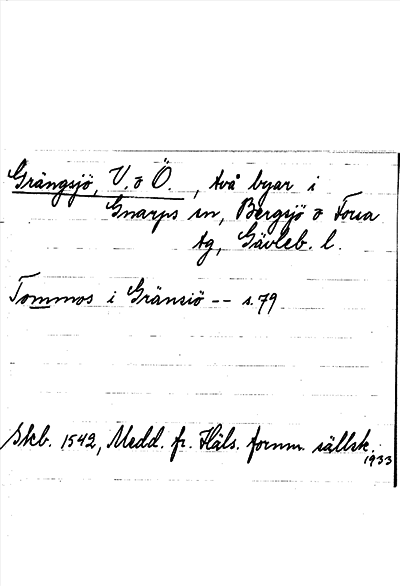 Grängsjö, V. o Ö. , två byar i
Gnarps sn, Bergsjö o Forsa
tg, Gävleb. l.
Tommos i Gränsiö -- s. 79
Skb. 1542, Medd. fr. Häls. fornm. sällsk.
1933